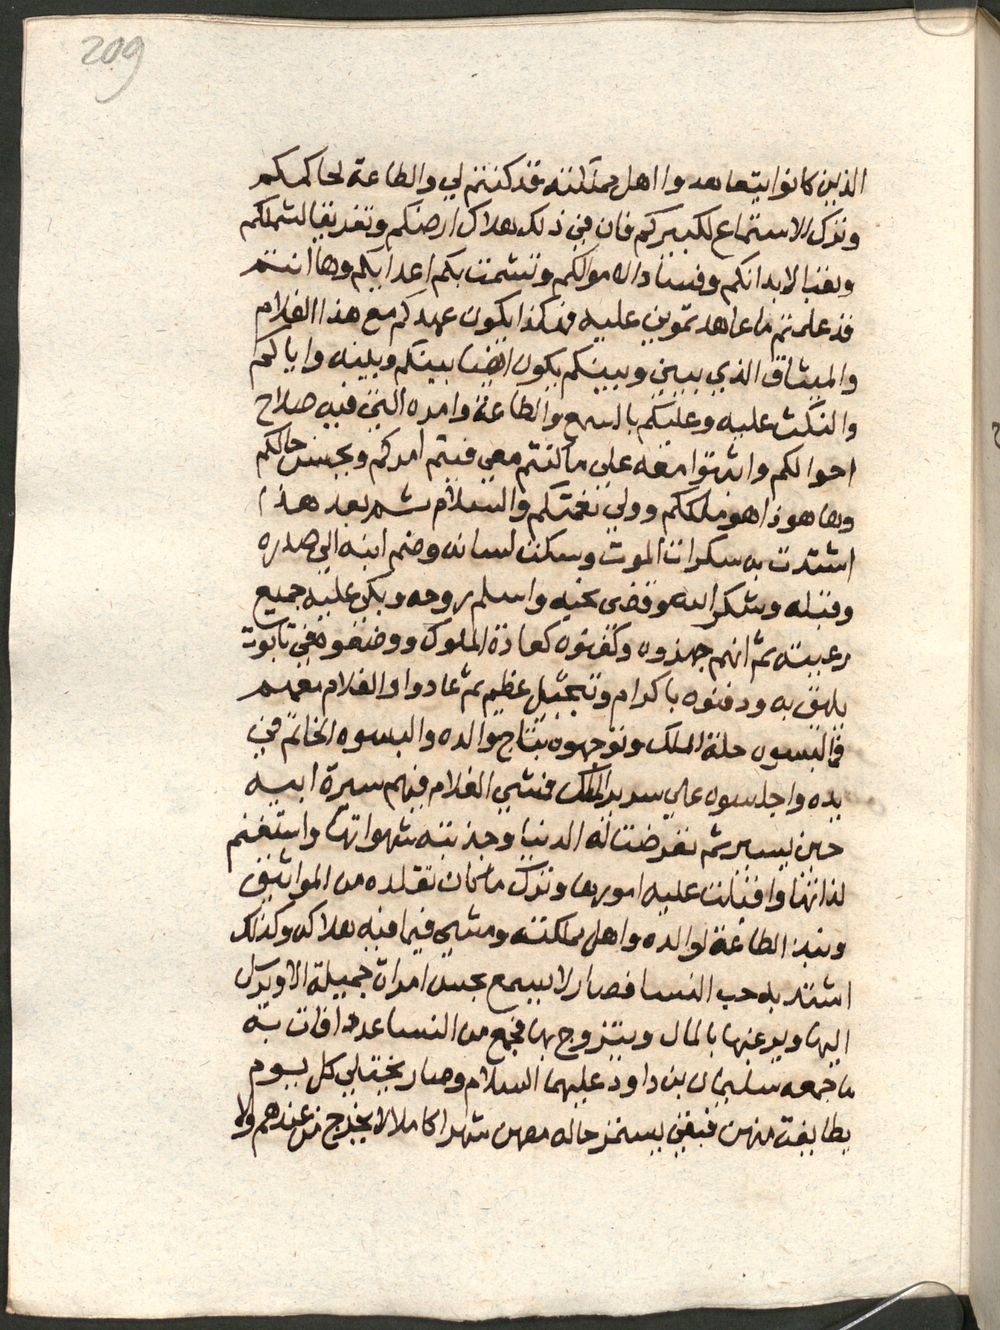 209
الذين كانوا يتعاهدوا اهل مملكته قد كنتم لي والطاعة لحاكمكم
وترك الاستماع لكبيركم فان في ذلك هلاك ارضكم وتفريقا لشملكم
وفنا لابدانكم وفسادا لاموالكم وتشمت بكم اعدايكم وها انتم
قد علمتم ما عاهدتموني عليه فهكذا يكون عهدكم مع هذا الغلام
والميثاق الذي بيني وبينكم يكون ايضا بينكم وبينه واياكم
والنكث عليه وعليكم بالسمع والطاعة وامره التي فيه صلاح
احوالكم واثبتوا معه على ما كنتم معي فيتم امركم ويحسن حالكم
وها هوذا هو ملككم وولي نعمتكم والسلام ثم بعد هذا
اشتدت به سكرات الموت وسكت لسانه وضم ابنه الي صدره
وقبله وشكر الله وقضى نحبه واسلم روحه وبكي عليه جميع
رعيته ثم انهم جهزوه وكفنوه كعادة الملوك ووضعوه في تابوت
يليق به ودفنوه باكرام وتبجيل عظيم ثم عادوا والغلام معهم
فالبسوه حلة الملك وتوجهوه بتاج والده والبسوه الخاتم في
يده واجلسوه علي سرير الملك فمشي الغلام فيهم سيرة ابيه
حين يسير ثم تعرضت له الدنيا وجذبته شهواتها واستغنم
لذاتها واقبلت عليه امورها وترك ما كان تقلده من المواثيق
ونبذ الطاعة لوالده واهل مملكته ومشي فيما فيه هلاكه وكذلك
اشتد به حب النسا فصار لا يسمع بحسن امراة جميلة الا ويرسل
اليها ويرغبها بالمال ويتزوج بها فجمع من النسا عددا فات به
ما جمعه سليمان بن داود عليهما السلام وصار يختلي كل يوم
بطايفة منهن فبقي يستمر حاله معهن شهرا كاملا لا يخرج من عندهم ولا